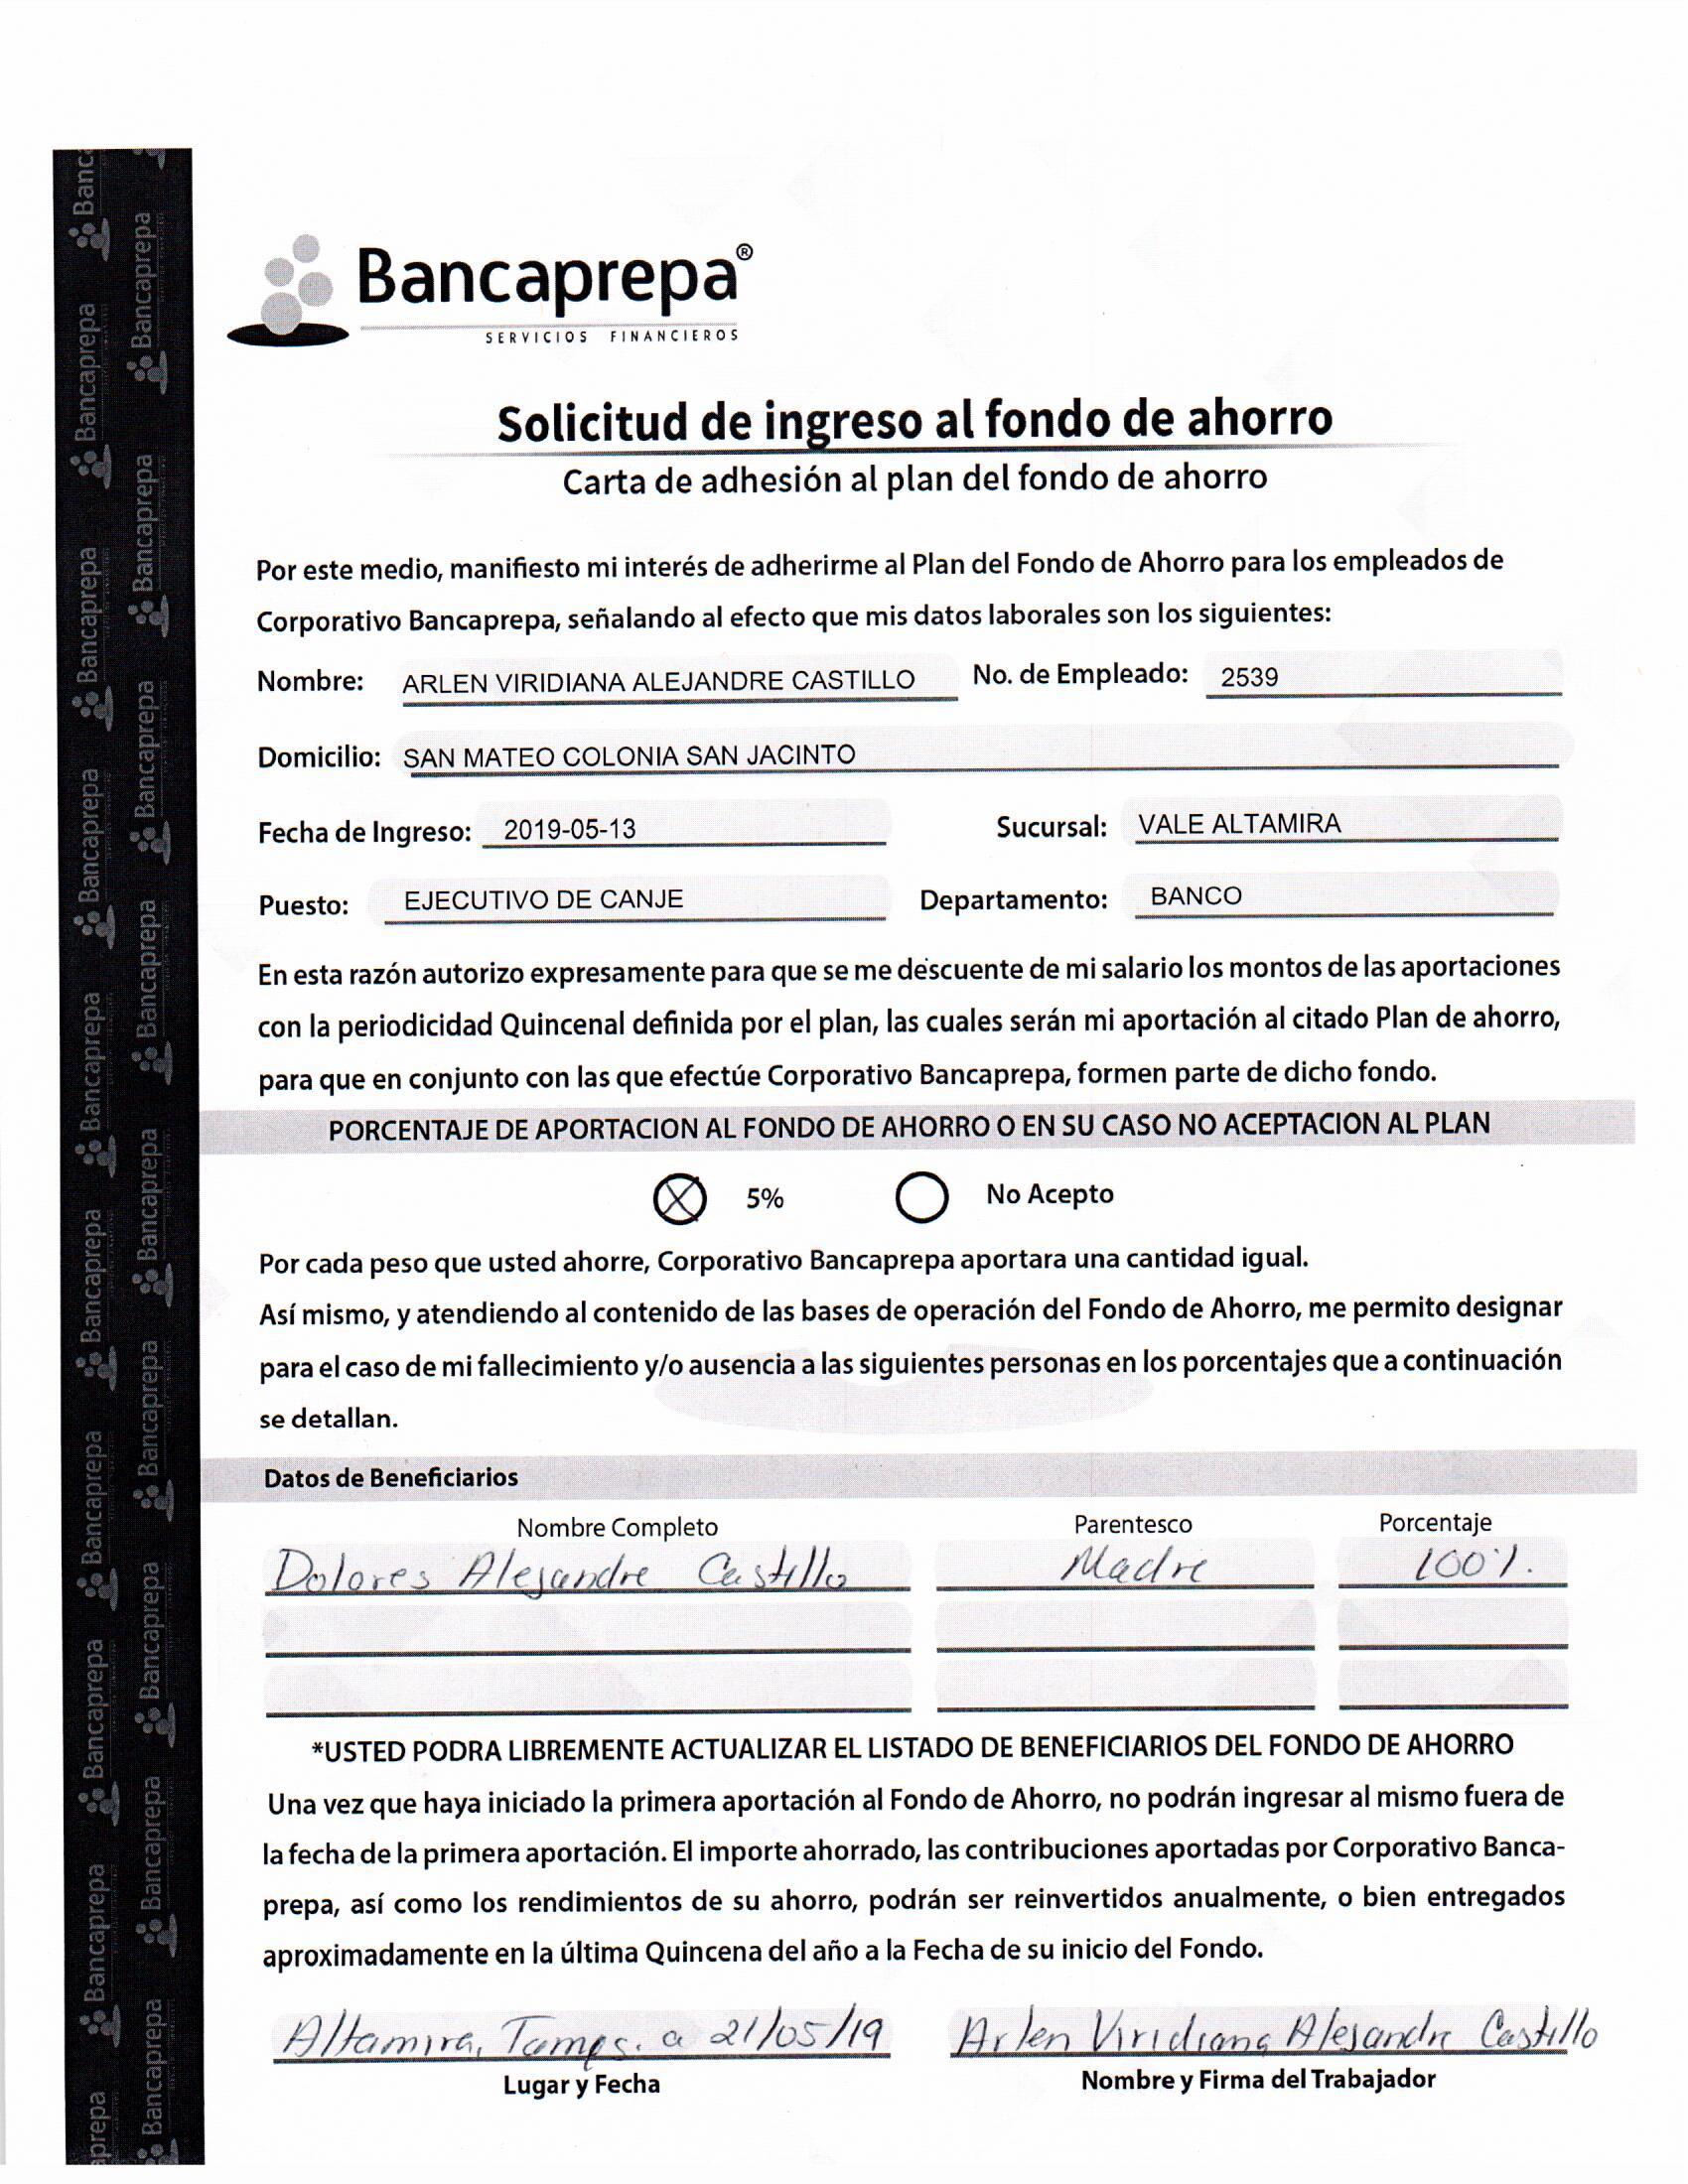 Bancaprepa®
SERVICIOS FINANCIEROS
Solicitud de ingreso al fondo de ahorro
Carta de adhesión al plan del fondo de ahorro
Por este medio, manifiesto mi interés de adherirme al Plan del Fondo de Ahorro para los empleados de
Corporativo Bancaprepa, señalando al efecto que mis datos laborales son los siguientes:
Nombre: ARLEN VIRIDIANA ALEJANDRE CASTILLO No. de Empleado: 2539
Domicilio: SAN MATEO COLONIA SAN JACINTO
Fecha de Ingreso: 2019-05-13 Sucursal: VALE ALTAMIRA
Puesto: EJECUTIVO DE CANJE Departamento: BANCO
En esta razón autorizo expresamente para que se me descuente de mi salario los montos de las aportaciones
con la periodicidad Quincenal definida por el plan, las cuales serán mi aportación al citado Plan de ahorro,
para que en conjunto con las que efectúe Corporativo Bancaprepa, formen parte de dicho fondo.
PORCENTAJE DE APORTACION AL FONDO DE AHORRO O EN SU CASO NO ACEPTACION AL PLAN
X 5% No Acepto
Por cada peso que usted ahorre, Corporativo Bancaprepa aportara una cantidad igual.
Así mismo, y atendiendo al contenido de las bases de operación del Fondo de Ahorro, me permito designar
para el caso de mi fallecimiento y/o ausencia a las siguientes personas en los porcentajes que a continuación
se detallan.
Datos de Beneficiarios
Nombre Completo Parentesco Porcentaje
Dolores Alejandre Castillo Madre 100%.
*USTED PODRA LIBREMENTE ACTUALIZAR EL LISTADO DE BENEFICIARIOS DEL FONDO DE AHORRO
Una vez que haya iniciado la primera aportación al Fondo de Ahorro, no podrán ingresar al mismo fuera de
la fecha de la primera aportación. El importe ahorrado, las contribuciones aportadas por Corporativo Banca-
prepa, así como los rendimientos de su ahorro, podrán ser reinvertidos anualmente, o bien entregados
aproximadamente en la última Quincena del año a la Fecha de su inicio del Fondo.
Altamira, Tamps. a 21/05/19 Arlen Viridiana Alejandre Castillo
Lugar y Fecha Nombre y Firma del Trabajador